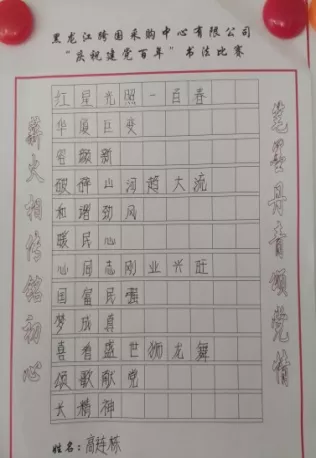 黑龙江跨国采购中心有限公司
“庆祝建党百年”书法比赛
笔墨丹青颂党情
薪火相传铭初心
红星光照一百春
华厦巨变
容颜新
破碎山河趟大流
和谐劲风
暖民心
心同志刚业兴旺
国富民强
梦成真
喜看盛世狮龙舞
颂歌献党
大精神
姓名:高连栋